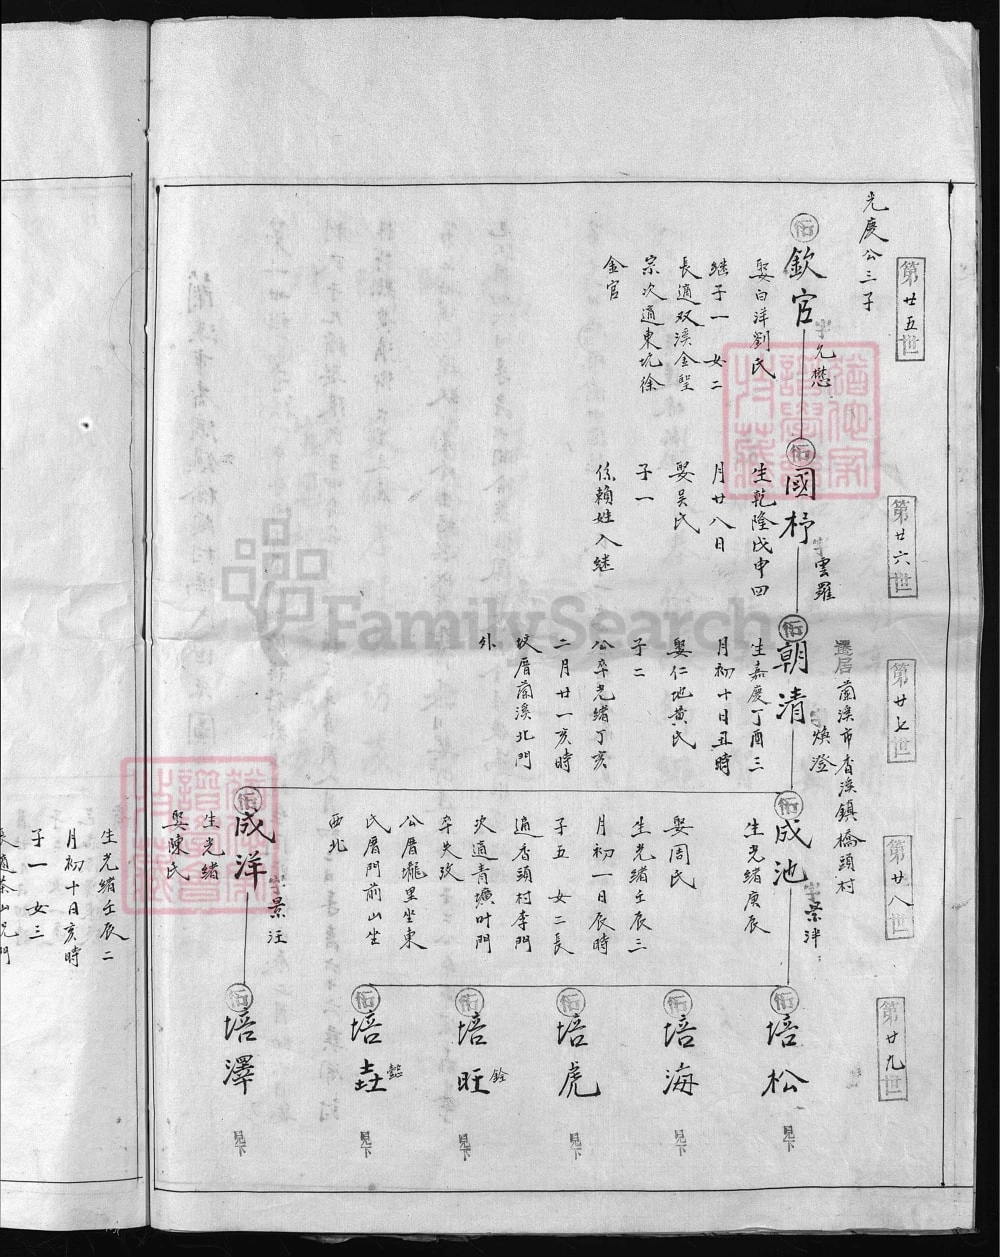 第廿五世
光慶公三子
衍
欽官
字允懋
娶白洋劉氏
継子一 女二
長適双溪金聖
宗次適東坑徐
金官
第廿六世
衍
國杼
字雲羅
生乾隆戊申四
月廿八日
娶吴氏
子一
係賴姓入継
第廿七世
遷居蘭溪市香溪鎮橋頭村
衍
朝清
字煥澄
生嘉慶丁酉三
月初十日丑時
娶仁地黄氏
子二
公卒光緒丁亥
二月廿一亥時
坟厝蘭溪北門
外
第廿八世
衍
成池
字景泮
生光緒庚辰
娶周氏
生光緒壬辰三
月初一日辰時
子五 女二長
適香頭村李門
次適青塘叶門
卒失攷
公厝壠里坐東
氏厝門前山坐
西北
衍
成洋
字景汪
生光緒
娶陳氏
第廿九世
衍
培松
見下
衍
培海
見下
衍
培虎
見下
衍
培旺
銓
見下
衍
培壵
懿
見下
衍
培澤
見下
生光緒壬辰二
月初十日亥時
子一 女三
FamilySearch